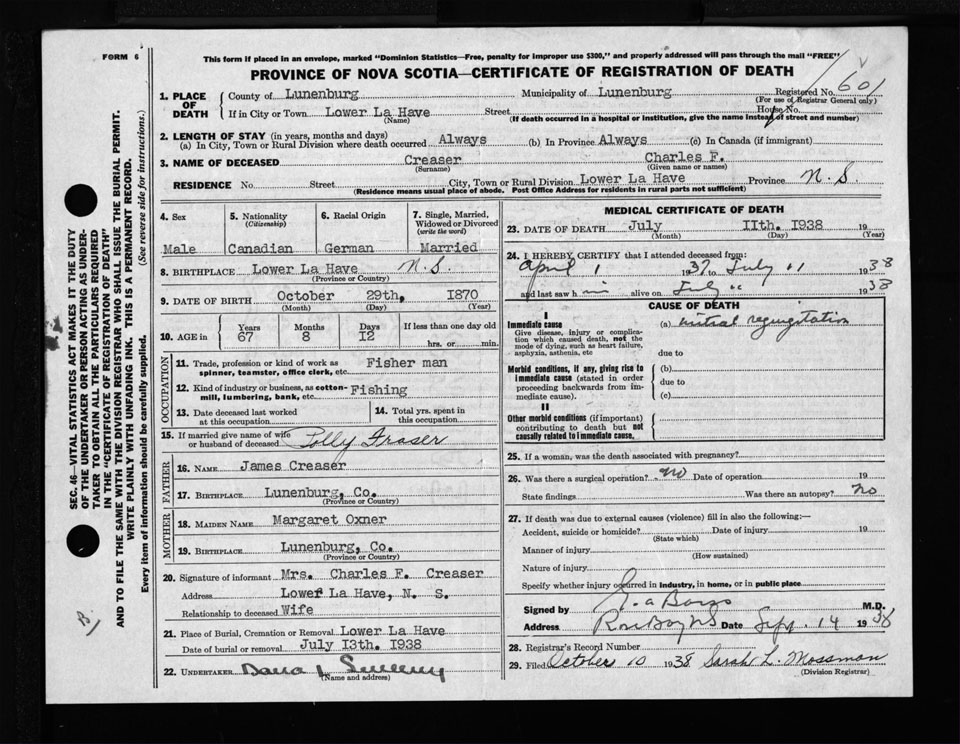 FORM 6
This form if placed in an envelope, marked "Dominion Statistics—Free, penalty for improper use $300," and properly addressed will pass through the mail "FREE"
PROVINCE OF NOVA SCOTIA—CERTIFICATE OF REGISTRATION OF DEATH
601
1. PLACE OF DEATH
County of Lunenburg Municipality of Lunenburg Registered No.
(For use of Registrar General only)
If in City or Town Lower La Have Street House No.
(Name) (If death occurred in a hospital or institution, give the name instead of street and number)
2. LENGTH OF STAY (in years, months and days)
(a) In City, Town or Rural Division where death occurred Always (b) In Province Always (c) In Canada (if immigrant)
3. NAME OF DECEASED Creaser Charles F.
(Surname) (Given name or names)
RESIDENCE No. Street City, Town or Rural Division Lower La Have Province N. S.
(Residence means usual place of abode. Post Office Address for residents in rural parts not sufficient)
4. Sex 5. Nationality (Citizenship) 6. Racial Origin 7. Single, Married, Widowed or Divorced (write the word)
Male Canadian German Married
8. BIRTHPLACE Lower La Have N. S.
(Province or Country)
9. DATE OF BIRTH October 29th, 1870
(Month) (Day) (Year)
10. AGE in Years Months Days If less than one day old
67 8 12 hrs. or min.
OCCUPATION
11. Trade, profession or kind of work as Fisher man
spinner, teamster, office clerk, etc.
12. Kind of industry or business, as cotton- Fishing
mill, lumbering, bank, etc.
13. Date deceased last worked at this occupation
14. Total yrs. spent in this occupation
15. If married give name of wife or husband of deceased Polly Fraser
FATHER
16. NAME James Creaser
17. BIRTHPLACE Lunenburg, Co.
(Province or Country)
MOTHER
18. MAIDEN NAME Margaret Oxner
19. BIRTHPLACE Lunenburg, Co.
(Province or Country)
20. Signature of informant Mrs. Charles F. Creaser
Address Lower La Have, N. S.
Relationship to deceased Wife
21. Place of Burial, Cremation or Removal Lower La Have
Date of burial or removal July 13th. 1938
22. UNDERTAKER Dana L Sweeny
(Name and address)
MEDICAL CERTIFICATE OF DEATH
23. DATE OF DEATH July 11th. 1938 19
(Month) (Day) (Year)
24. I HEREBY CERTIFY that I attended deceased from:
April 1 1937 to July 11 1938
and last saw him alive on July 11 1938
CAUSE OF DEATH
I
Immediate cause (a) mitral regurgitation
Give disease, injury or complication which caused death, not the mode of dying, such as heart failure, asphyxia, asthenia, etc
due to
Morbid conditions, if any, giving rise to immediate cause (stated in order proceeding backwards from immediate cause).
(b)
due to
(c)
II
Other morbid conditions (if important) contributing to death but not causally related to immediate cause.
25. If a woman, was the death associated with pregnancy?
26. Was there a surgical operation? no Date of operation 19
State findings Was there an autopsy? no
27. If death was due to external causes (violence) fill in also the following:—
Accident, suicide or homicide? Date of injury 19
(State which)
Manner of injury
(How sustained)
Nature of injury
Specify whether injury occurred in industry, in home, or in public place
Signed by M.D.
Address Rose Bay NS Date Sept. 14 1938
28. Registrar's Record Number
29. Filed October 10 1938 Sarah L. Mossman
(Division Registrar)
SEC. 46—VITAL STATISTICS ACT MAKES IT THE DUTY
OF THE UNDERTAKER OR PERSON ACTING AS UNDER-
TAKER TO OBTAIN ALL THE PARTICULARS REQUIRED
IN THE "CERTIFICATE OF REGISTRATION OF DEATH"
AND TO FILE THE SAME WITH THE DIVISION REGISTRAR WHO SHALL ISSUE THE BURIAL PERMIT.
WRITE PLAINLY WITH UNFADING INK. THIS IS A PERMANENT RECORD.
Every item of information should be carefully supplied. (See reverse side for instructions.)